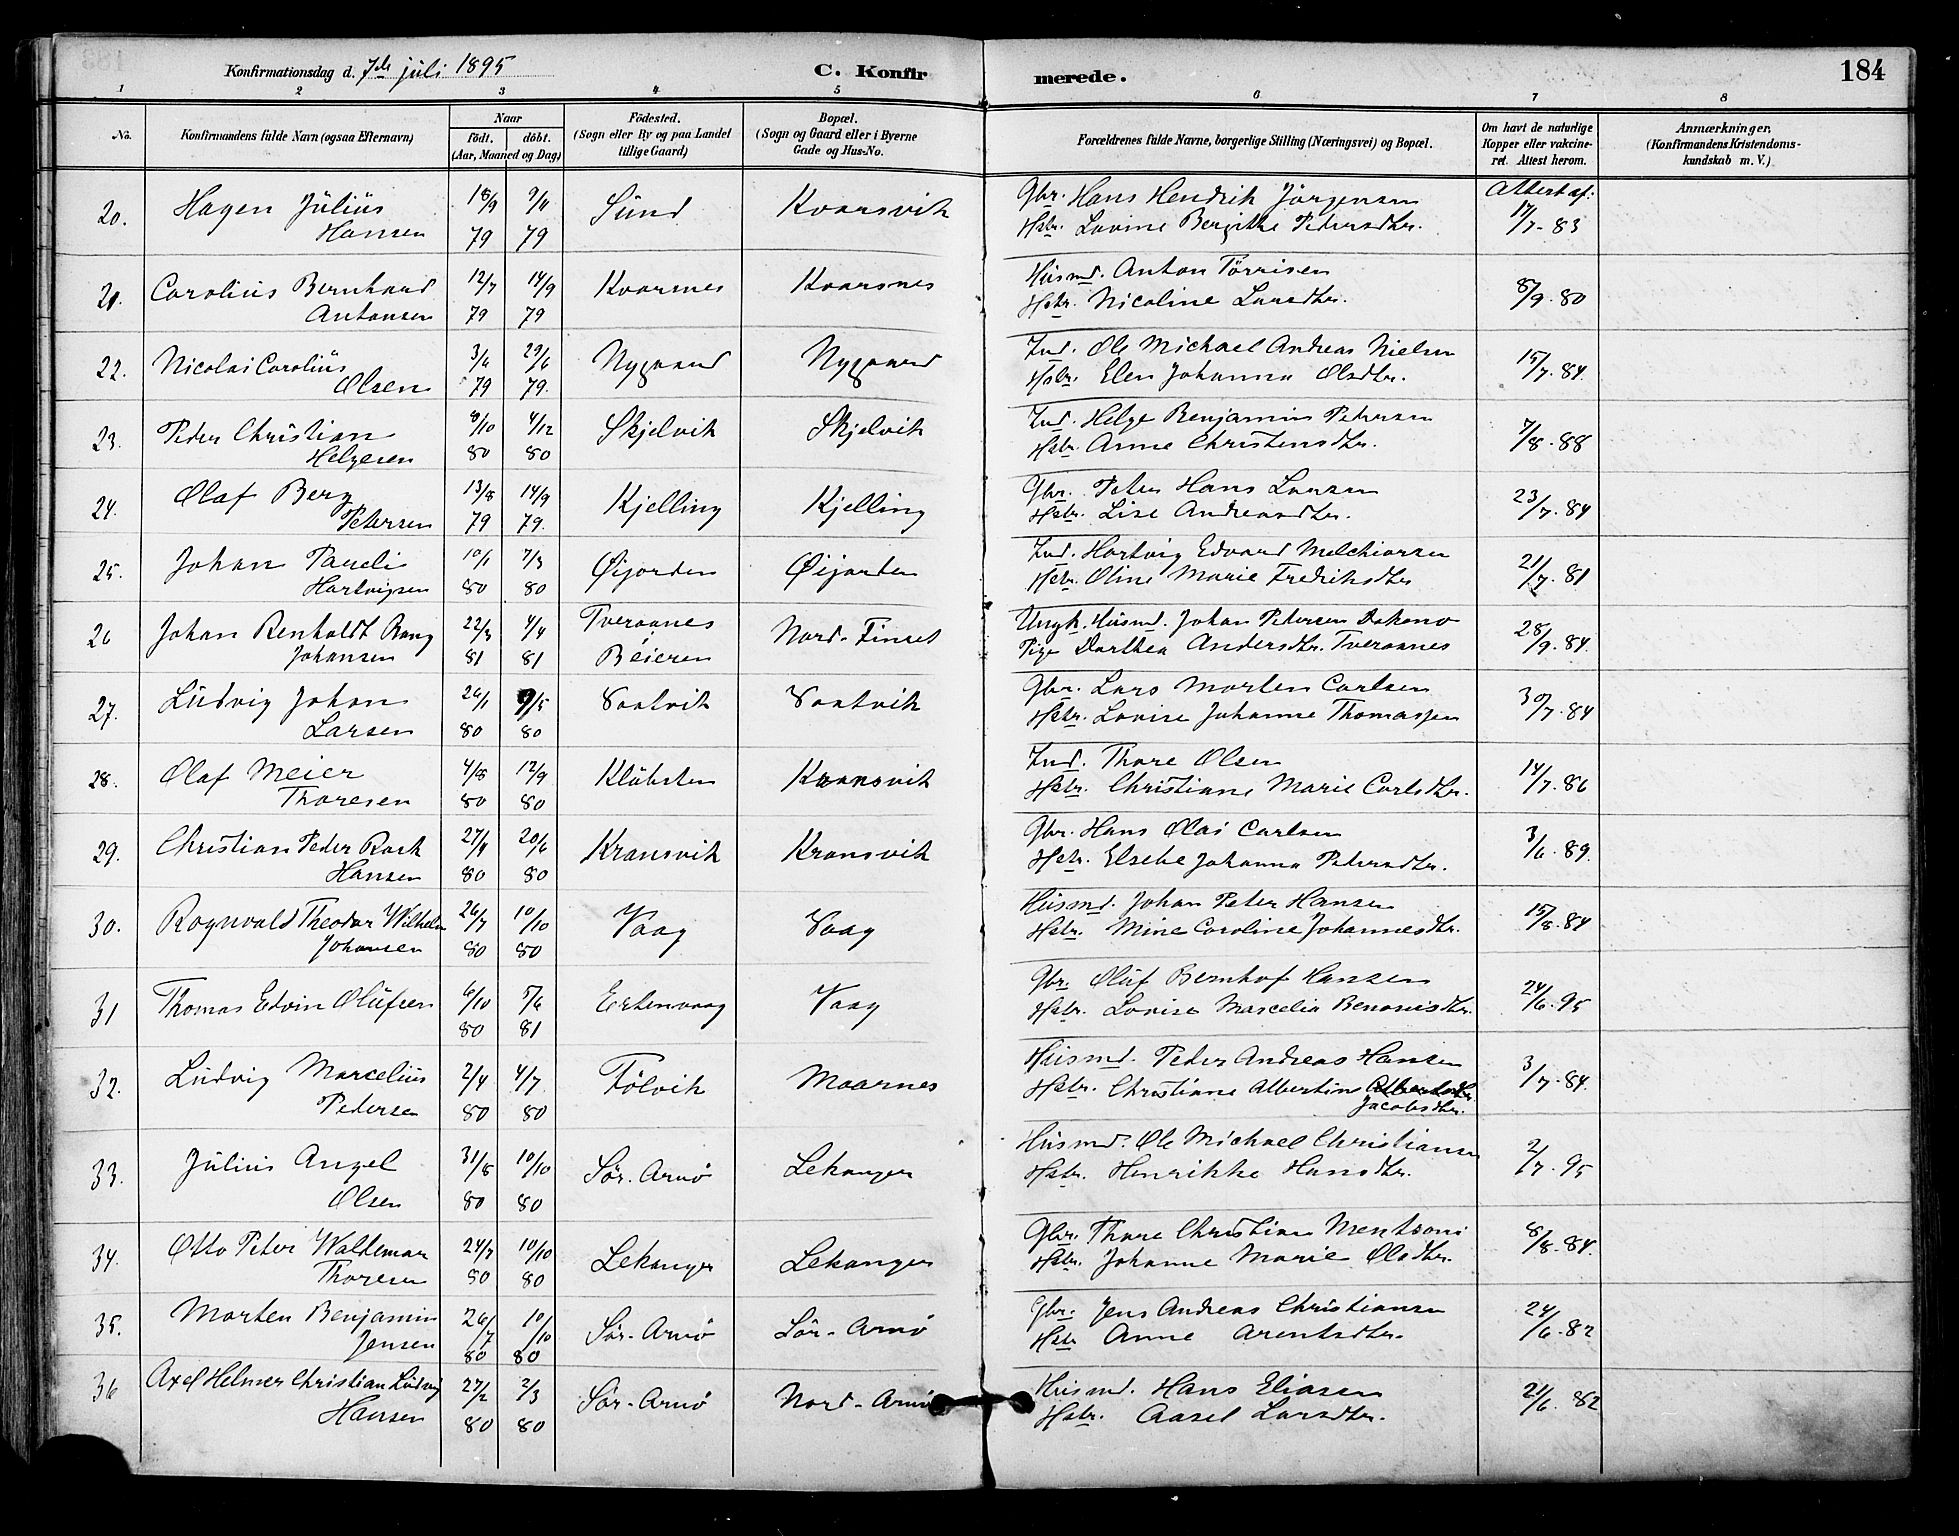 Konfirmationsdag d. 7de juli 1895
C. Konfir merede.
184
1 2 3 4 5 6 7 8
No.
Konfirmandens fulde Navn (ogsaa Efternavn)
Naar
födt. döbt.
(Aar, Maaned og Dag)
Födested.
(Sogn eller By og paa Landet
tillige Gaard)
Bopæl.
(Sogn og Gaard eller i Byerne
Gade og Hus-No.
Forældrenes fulde Navne, borgerlige Stilling (Næringsvei) og Bopæl.
Om havt de naturlige
Kopper eller vakcine-
ret. Attest herom.
Anmærkninger.
(Konfirmandens Kristendoms-
kundskab m. V.)
20. Hagen Julius 18/9 9/11 Sund Kvarsvik Gbr. Hans Hendrik Jörgensen Attest af:
Hansen 79 79 Hstr. Lovine Bergitte Pedersdtr. 17/7-83
21. Carolius Bernhard 12/7 14/9 Kvarsnes Kvarsnes Husmd. Anton Törrisen
Antonsen 79 79 Hstr. Nicoline Larsdtr. 8/9-80
22. Nicolai Carolius 3/6 29/6 Nygaard Nygaard Ind. Ole Michael Andreas Nielsen
Olsen 79 79. Hstr. Elen Johanna Olsdtr. 15/7-84
23. Peder Christian 9/10 4/12 Skjelvik Skjelvik Ind. Helge Benjamin Petersen
Helgesen 80 80 Hstr. Anne Christensdtr. 7/8-88
24. Olaf Berg 13/8 14/9 Kjelling Kjelling Gbr. Peter Hans Larsen
Petersen 79 79. Hstr. Lise Andreasdtr. 23/7-84
25. Johan Paueli 10/1 7/3 Øijorden Øijorden Ind. Hartvig Edvard Melchiorsen
Hartvigsen 80 80 Hstr. Oline Marie Fredriksdtr 21/7-81
26 Johan Renholdt Bang 22/3 4/4 Tveraanes Nord-Finset Ungk. Husmd. Johan Petersen Dokmo
Johansen 81 81 Beieren Pige Dorthea Andersdtr. Tveraanes 28/9-84.
27. Ludvig Johan 26/1 9/5 Saatvik Saatvik Gbr. Lars Morten Carlsen
Larsen 80 80 Hstr. Lovise Johanne Thomassen 30/7-84
28. Olaf Meier 4/8 12/9 Klöksten Kransvik Ind. Thore Olsen
Thoresen 80 80 Hstr. Christiane Marie Carlsdtr. 14/7-86
29. Christian Peder Rask 27/4 20/6 Kransvik Kransvik Gbr. Hans Olai Carlsen
Hansen 80 80 Hstr. Elsebe Johanna Petersdtr. 3/6-89.
30. Rognvald Theodor Wilhelm 26/7 10/10 Vaag Vaag Husmd. Johan Peter Hansen
Johansen 80 80 Hstr. Mine Caroline Johannesdtr. 15/8-84
31 Thomas Edvin Olufsen 6/10 5/6 Ertenvaag Vaag Gbr. Oluf Bernhof Hansen
80 81 Hstr. Lovise Marcelia Benonisdtr. 24/6-95
32. Ludvig Marcelius 2/4 4/7 Fölvik Maarnes Husmd. Peder Andreas Hansen
Pedersen 80 80 Hstr. Christiane Albertine 3/7-84.
Jacobsdtr.
33. Julius Angel 31/8 10/10 Sör-Arnö Lekanger Husmd. Ole Michael Christiansen
Olsen 80 80 Hstr. Henrikke Hansdtr. 2/7-95
34. Otto Peter Waldemar 24/7 10/10 Lekanger Lekanger Gbr. Thore Christian Mentsoni
Thoresen 80 80 Hstr. Johanne Marie Olsdtr. 8/8-84.
35. Morten Benjamin 26/7 10/10 Sör-Arnö Sör-Arnö Gbr. Jens Andreas Christiansen
Jensen 80 80 Hstr Anne Arentsdtr. 24/6-82
36 Axel Helmer Christian Ludvig 27/2 2/3 Sör-Arnö Nord-Arnö Husmd. Hans Eliasen
Hansen 80 80 Hstr. Aasel Larsdtr. 21/6.82